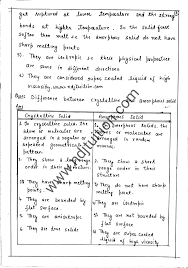 get ruptured at lower temperature and the strong
bonds at higher temperature. So the solid first
soften then melt so the amorphous solid do not have
sharp melting point.
3) They are isotropic i.e. their physical properties
are same in different direction.
4) They are considered super cooled liquid of high
viscosity.
Ques: Difference between crystalline & amorphous solid
Ans:
Crystalline Solid
1. In crystalline solid, the
atoms or molecules are
arranged in a regular &
repeated geometrical
pattern
2. They show a long
order in three
3. They have sharp melting
point.
4. They are bounded by
flat surface.
5. They are anisotropic
6. They are true solids
Amorphous Solid
1. In amorphous solids, the
or molecules or
are arranged in
random manner.
2. They show a short
range order in their
3. They do not have sharp
melting point.
4. They are not bounded by
flat surface.
5. They are isotropic
6. They are super cooled
liquid of high viscosity